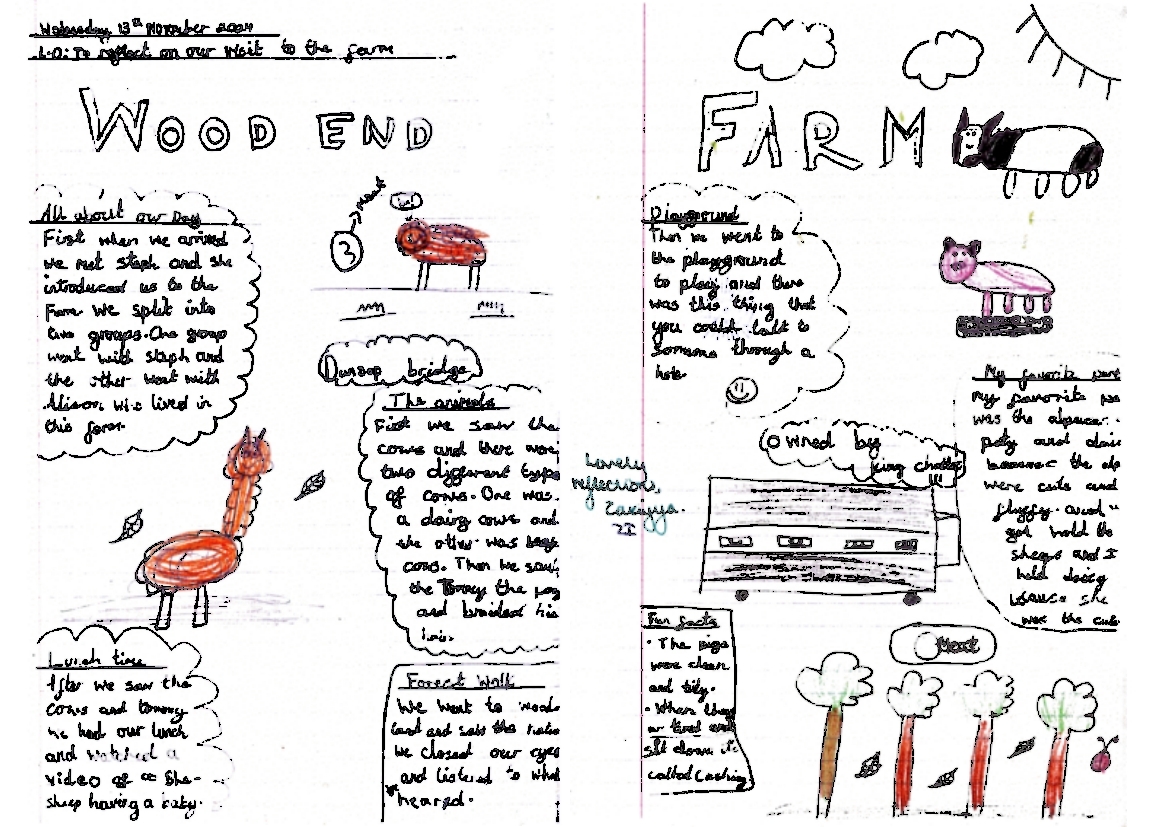 Wednesday 13th November 2024
L.O: To reflect on our visit to the farm
WOOD END
FARM
All about our Day
First when we arrived
we met steph and she
introduced us to the
Farm. We split into
two groups. One group
went with steph and
the other went with
Alison who lived in
this farm.
3
meat
Dunsop bridge
The animals
First we saw the
cows and there were
two different type
of cows. One was
a dairy cows and
the other was
cows. Then we saw
the Tommy the
and braided his
hair.
Lunch time
After we saw the
cows and tommy
we had our lunch
and watched a
video of a She-
sheep having a baby.
Forest Walk
We went to wood-
land and saw the
We closed our eyes
and listened to what
heared.
Playground
Then we went to
the playground
to play and there
was this thing that
you could talk to
someone through a
hole.
Owned by
king charles
Lovely
reflections,
Zakiyya.
My favorite
My favorite
was the
and
because the
were cute and
fluffy. and
got hold
sheeps and I
held
because she
was the
Fun facts
• The pigs
were clean
and tidy.
• When they
tired and
sit down it's
called
Meat